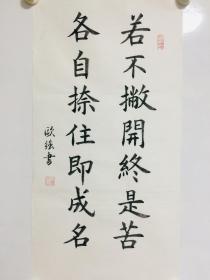 若不撇開終是苦
各自捺住即成名
歐強書